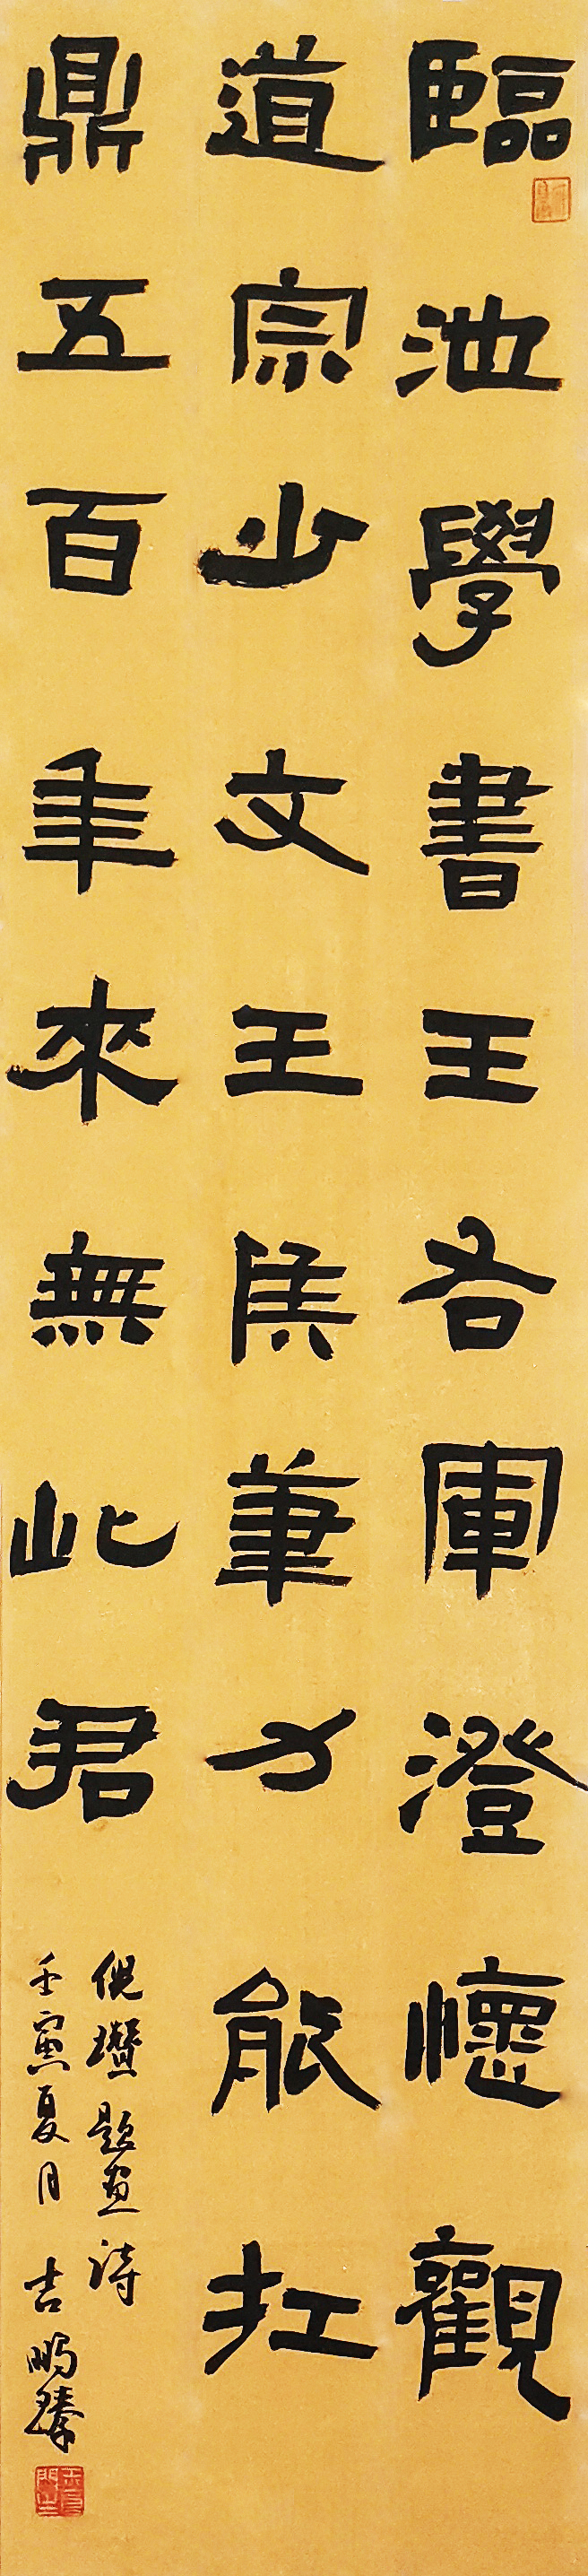 臨池學書王右軍澄懷觀
道宗少文王侯筆力能扛
鼎五百年來無此君
倪瓚題畫詩
壬寅夏月 吉鵬臻